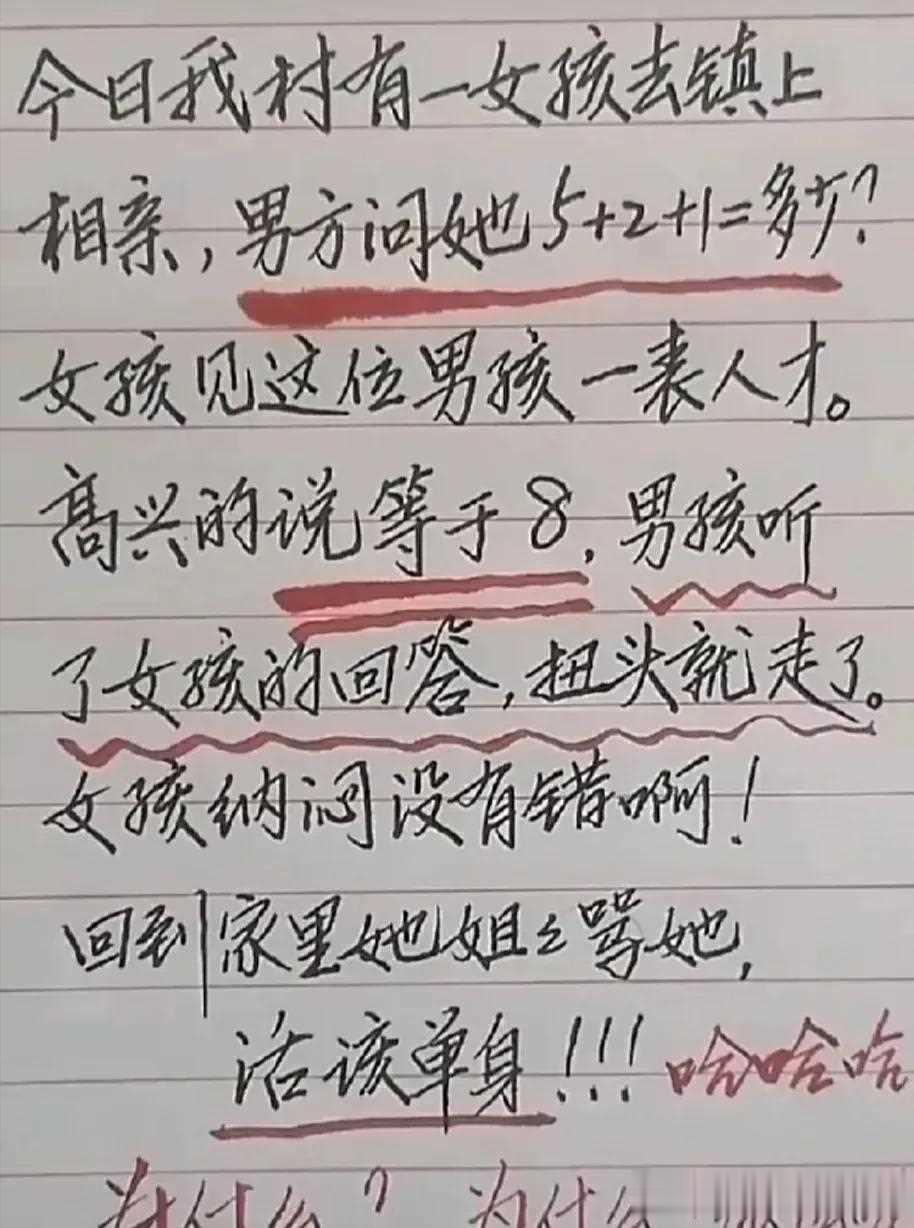 今日我村有一女孩去镇上
相亲,男方问她5+2+1=多少?
女孩见这位男孩一表人才。
高兴的说等于8,男孩听
了女孩的回答,扭头就走了。
女孩纳闷没有错啊!
回到家里她姐々骂她,
活该单身!!!哈哈哈
为什么?为什么